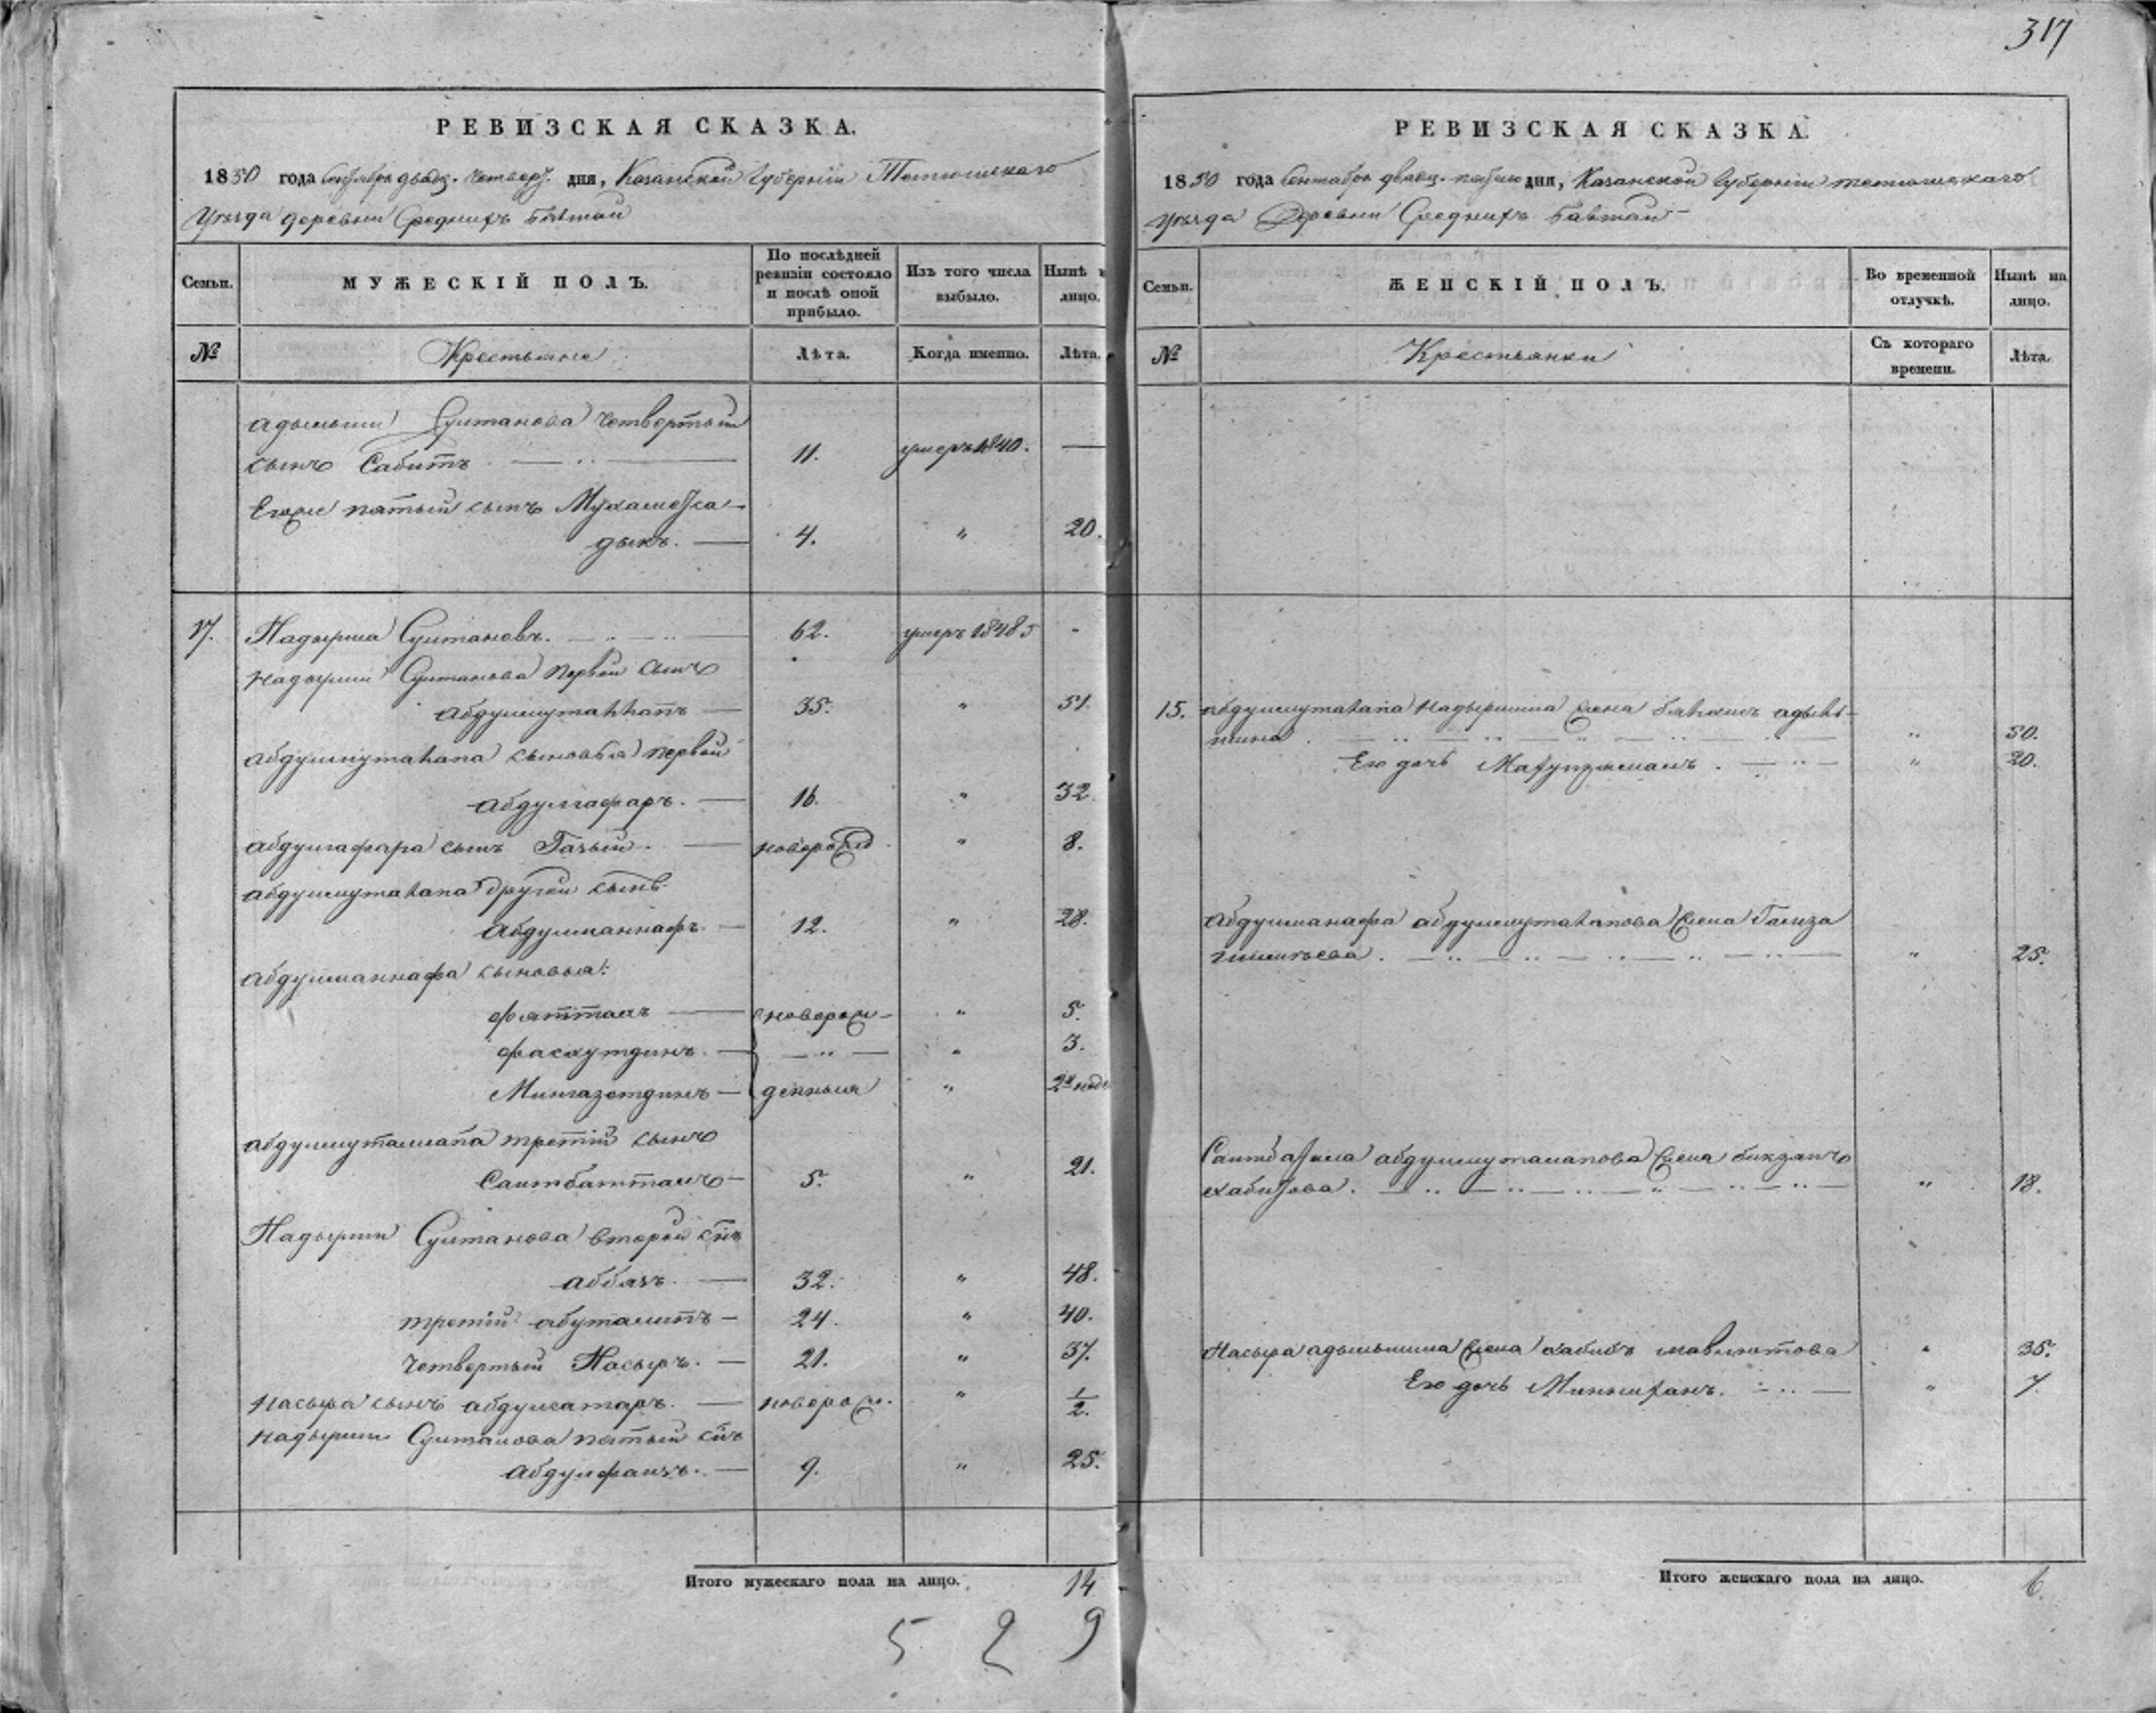 317
РЕВИЗСКАЯ СКАЗКА.
1850 года сентября двадц. четверт. дня, Казанской Губерніи Тетюшскаго
Уѣзда деревни Среднихъ Балтай
Семьи.
МУЖЕСКІЙ ПОЛЪ.
По послѣдней ревизіи состояло и послѣ оной прибыло.
Изъ того числа выбыло.
Нынѣ на лицо.
№
Крестьяне
Лѣта.
Когда именно.
Лѣта.
Адыльши Султанова четвертый
сынъ Сабитъ 11. умеръ 1840. —
Его же пятый сынъ Мухаметса-
дыкъ. 4. " 20.
17. Надырша Султановъ. 62. умеръ 1848 -
Надырши Султанова первой сынъ
Абдулмуталлапъ 35. " 51.
Абдулмуталапа сыновья первой
Абдулгафаръ. 16. " 32.
Абдулгафара сынъ Газый. новорожд. " 8.
Абдулмуталапа другой сынъ
Абдулманнафъ. 12. " 28.
Абдулманнафа сыновья:
Фяттахъ новорож- " 5.
Фасхутдинъ. — " — " 3.
Мингазетдинъ денныя " 2 неде
Абдулмуталлапа третій сынъ
Саитбатталъ 5. " 21.
Надырши Султанова второй сынъ
Аббязъ. 32. " 48.
третій Абуталипъ 24. " 40.
четвертый Насыръ. 21. " 37.
Насыра сынъ Абдулсатаръ. новорож. " 1/2.
Надырши Султанова пятый сынъ
Абдулфаизъ. 9. " 25.
Итого мужескаго пола на лицо. 14
5 2 9
РЕВИЗСКАЯ СКАЗКА.
1850 года Сентября двадц. дня, Казанской Губерніи Тетюшскаго
Уѣзда Деревни Среднихъ Балтай
Семьи.
ЖЕНСКІЙ ПОЛЪ.
Во временной отлучкѣ.
Нынѣ на лицо.
№
Крестьянки
Съ котораго времени.
Лѣта.
15. Абдулмуталапа Надыршина жена
" 50.
Его дочь " 20.
Абдулманафа Абдулмуталапова жена Гайза
" 25.
Саитбатала Абдулмуталапова жена Бикзанъ
Хабитова. " 18.
Насыра жена Хабибъ Мавлютова " 35.
Его дочь " 7.
Итого женскаго пола на лицо. 6.